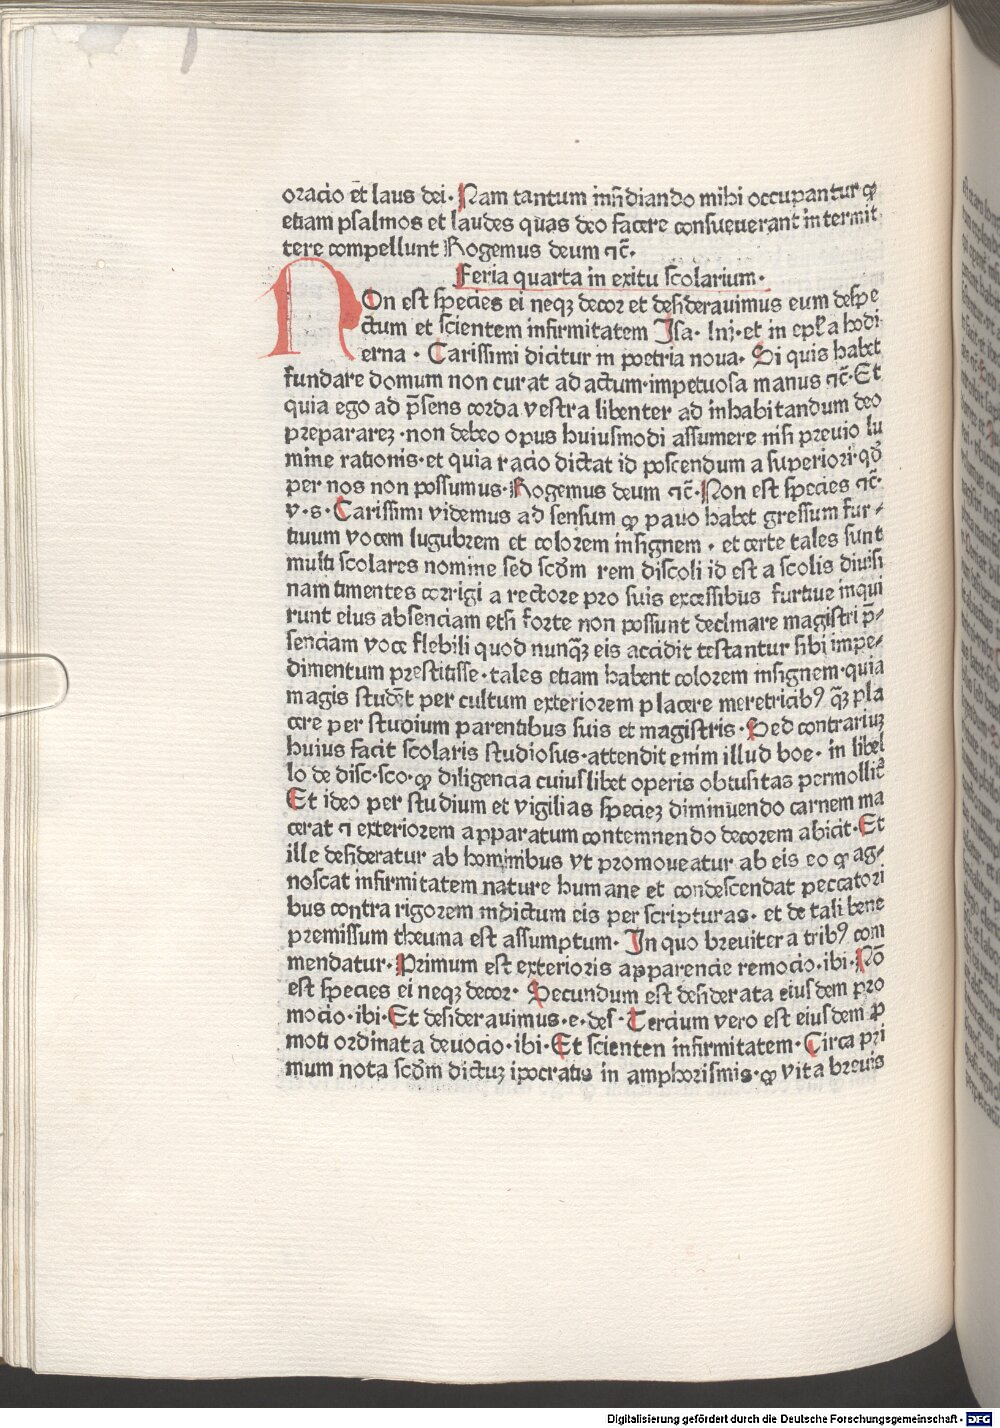 oracio et̄ laus dei· Nam tantum insidiando mihi occupantur ꝙ
etiam psalmos et laudes quas deo facere consueuerant intermit
tere compellunt Rogemus deum ⁊c̄·
Feria quarta in exitu scolarium·
NOn est species ei neqꝫ decor et desiderauimus eum despe
ctum et scientem infirmitatem Isa· liij·et in epl̄a hodi
erna · Carissimi dicitur in poetria noua· Si quis habet
fundare domum non curat ad actum·impetuosa manus ⁊c̄·Et
quia ego ad p̄sens corda vestra libenter ad inhabitandum deo
preparareꝫ ·non debeo opus huiusmodi assumere nisi preuio lu
mine rationis·et quia racio dictat id poscendum a superiori·qd̄
per nos non possumus·Rogemus deum ⁊c̄·Non est species ⁊c̄·
v·s· Carissimi videmus ad sensum ꝙ pauo habet gressum fur⸗
tiuum vocem lugubrem et colorem insignem · et certe tales sunt
multi scolares nomine sed scd̄m rem discoli id est a scolis diuisi
nam timentes corrigi a rectore pro suis excessibus furtiue inqui
runt eius absenciam etsi forte non possunt declinare magistri p̄⸗
senciam voce flebili quod nunqꝫ̄ eis accidit testantur sibi impe⸗
dimentum prestitisse·tales etiam habent colorem insignem·quia
magis student̄ per cultum exteriorem placere meretricibꝰ qꝫ̄ pla
cere per studium parentibus suis et magistris·Sed contrariuꝫ
huius facit scolaris studiosus·attendit enim illud boe· in libel
lo de disc·sco·ꝙ diligencia cuiuslibet operis obtusitas permollit̄
Et ideo per studium et vigilias specieꝫ diminuendo carnem ma
cerat ⁊ exteriorem apparatum contemnendo decorem abicit·Et
ille desideratur ab hominibus vt promoueatur ab eis eo ꝙ ag⸗
noscat infirmitatem nature humane et condescendat peccatori
bus contra rigorem indictum eis per scripturas· et de tali bene
premissum theuma est assumptum· In quo breuiter a tribꝰ com
mendatur·Primum est exterioris apparencie remocio·ibi·Nō
est species ei neqꝫ decor· Secundum est desiderata eiusdem pro
mocio·ibi·Et desiderauimus·e·des·Tercium vero est eiusdem ꝑ
moti ordinata deuocio·ibi·Et scienten infirmitatem·Circa pri
mum nota scd̄m dictuꝫ ipocratis in amphorismis·ꝙ vita breuis
Digitalisierung gefördert durch die Deutsche Forschungsgemeinschaft - DFG